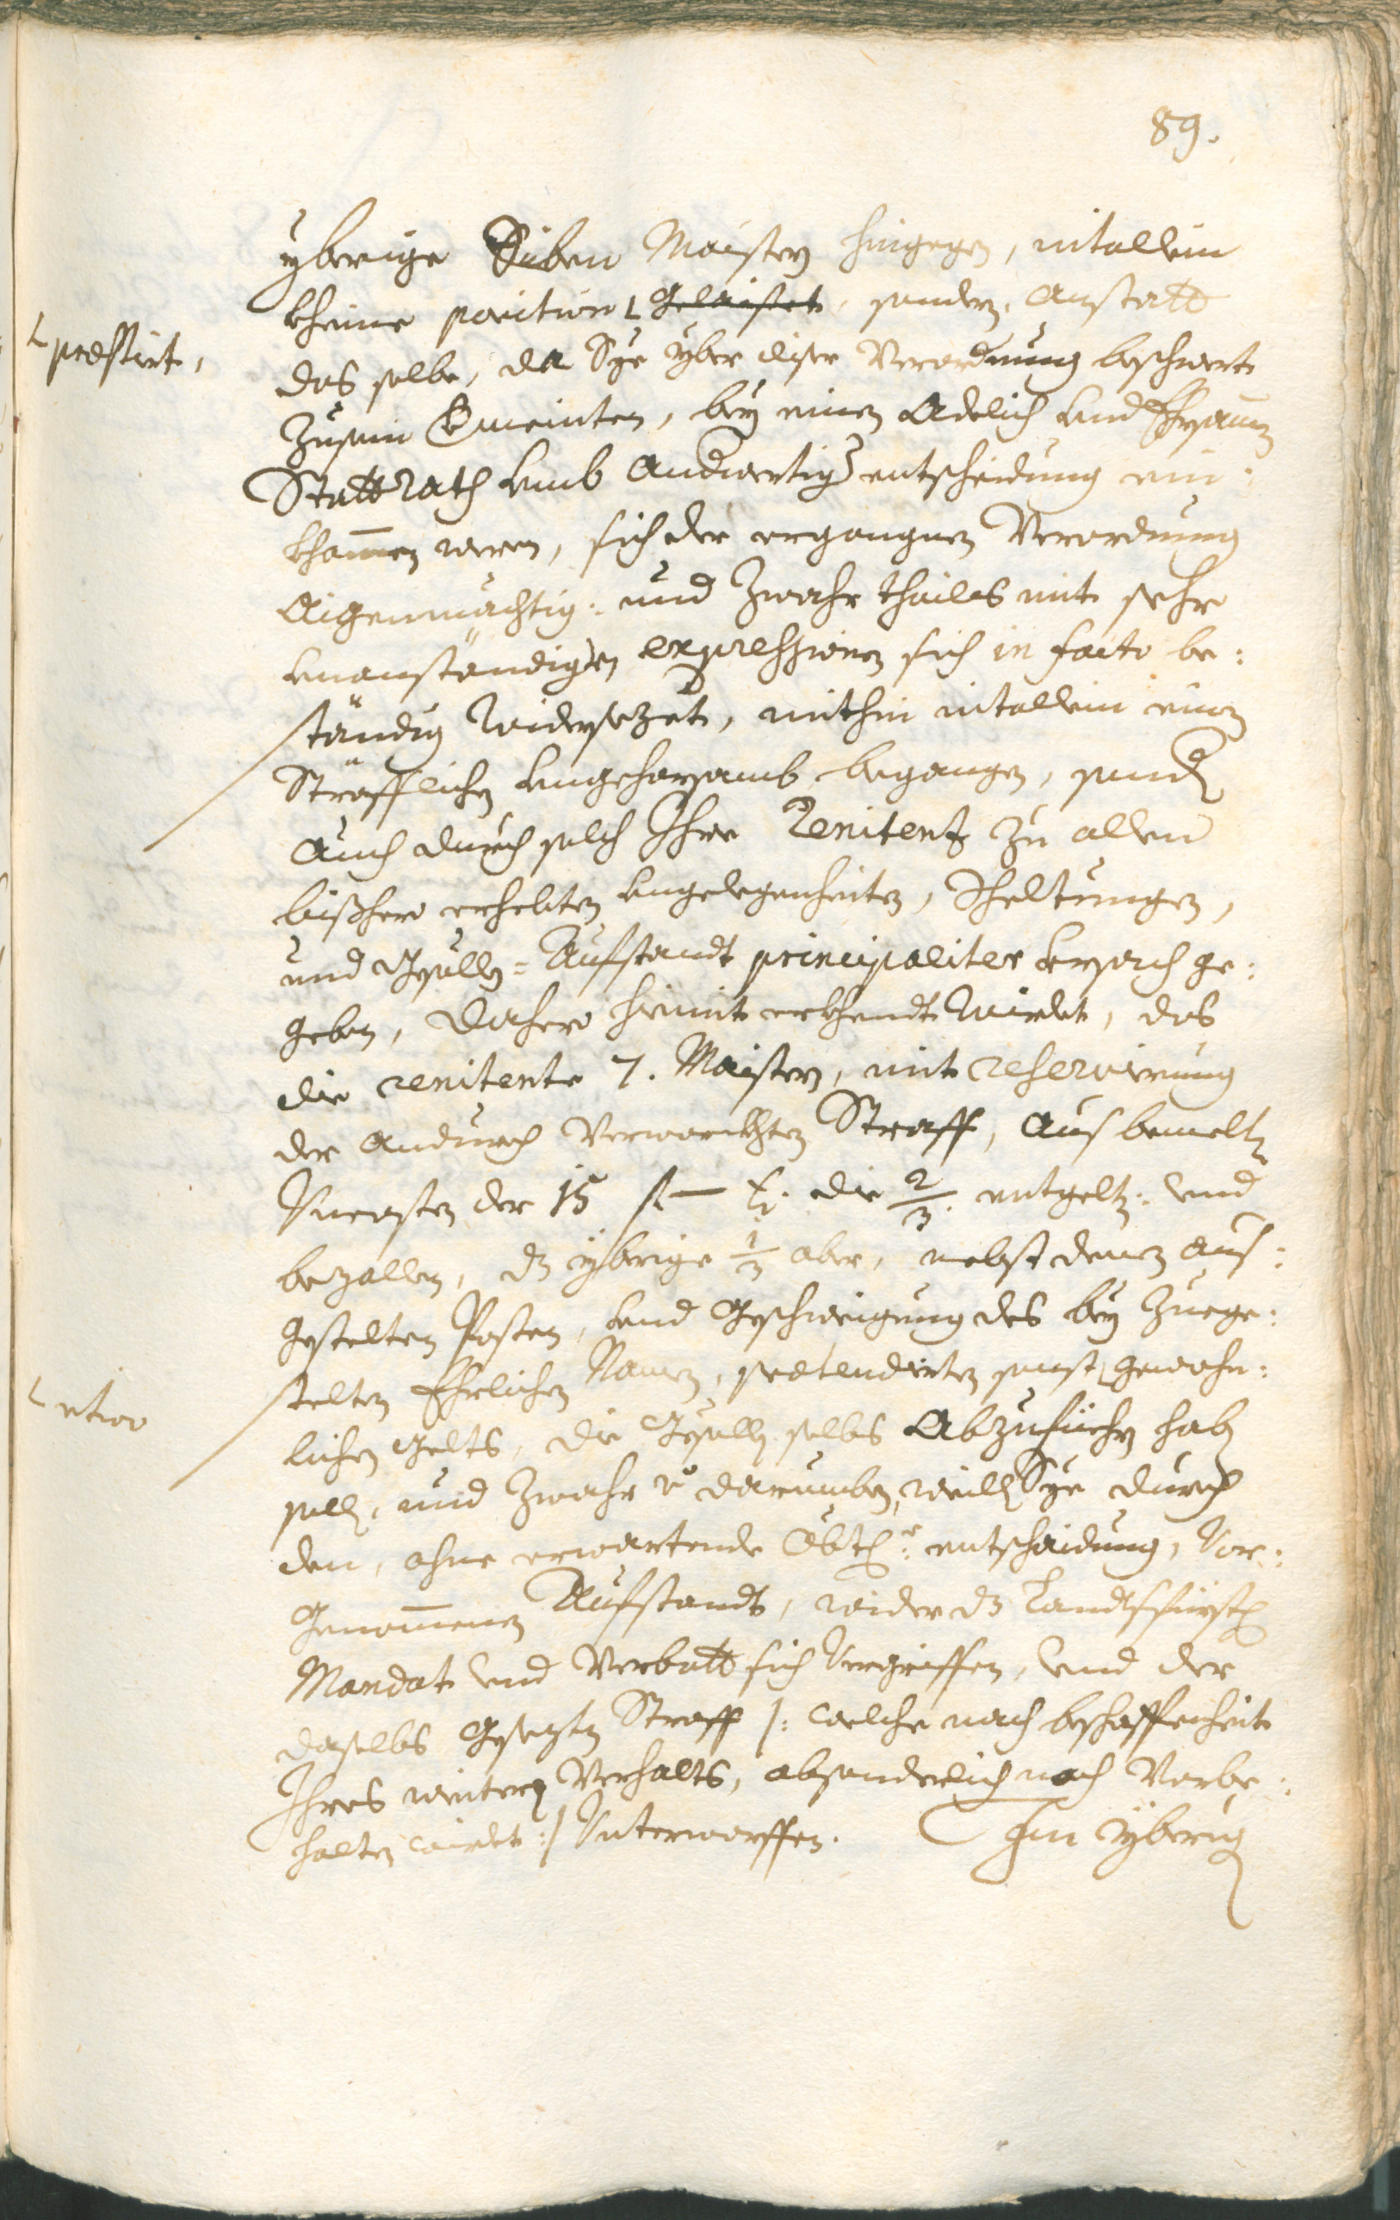 89.
yberige Siben Maister hingegen, nit allein
kheine parition Gelaistet, sondern, Anstatt
præstirt,
das selbe, da Sye yber diser Verordnung beschwert
Zusein Vermeinten, bey einen Adelich und Ehrsamen
Stattrath umb Andwertig entscheidung ein:
khommen weren, sich der ergangnen Verordnung
Aigenmächtig: und Zwahr theiles mit sehr
unanständigen expressionen sich in facto be:
ständig Widersezet, mithin nit allein einen
Sträfflichen ungehorsamb begangen, sondern
Auch durch solch Ihre Renitenz zu allen
bißhero erhebten ungelegenheiten, Scheltungen,
und Gsellen-Aufstandt principaliter Ursach ge:
geben, Dahero hiemit erkhendt Wirdet, das
die renitente 7. Maister, mit reservierung
der Andurch Verworchten Straff, Aus bemelten
Uncosten der 15 f — x. die 2/3. entgelten: und
bezallen, dz yberige 1/3 aber, nebst denen aus:
gestelten Posten, und Gschweigung des bey Zuege:
stelten Ehrlichen Namen, prætendirten sonst gewohn:
lichen Gelts, die Gsellen selbs Abzufüehren haben
sollen, und Zwahr darumben, weillen Sye durch
den, ohne erwartende Obrkht: entschaidung, Vor:
Genommenen Aufstandt, wider dz Landtsfürstl
Mandat und Verbott sich Vergriffen, und der
daselbs Gesezten Straff /: welche nach beschaffenheit
Ihres weitern Verhalts, absonderlich noch Vorbe:
halten wirdet :/ Unterworffen. Im yberigen